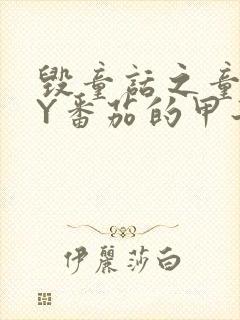 毁童话之童
Y番茄的甲
伊丽莎白